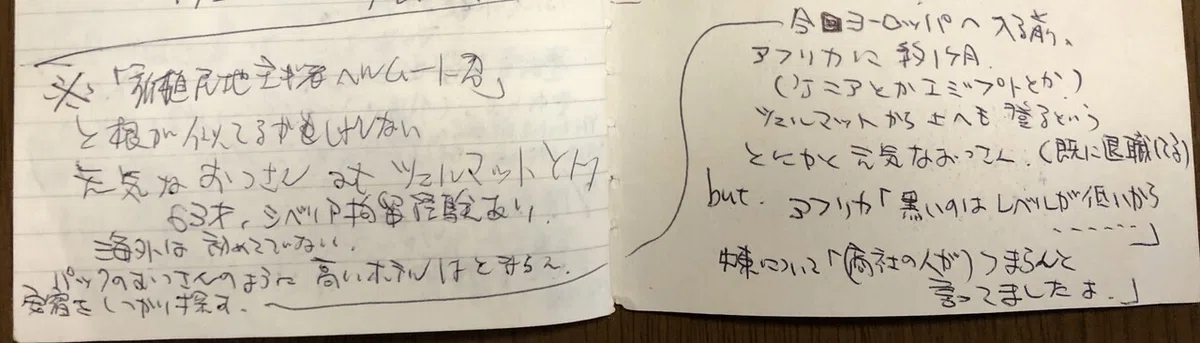 ※「新植民地主義者ヘルムート君」
と根が似てるかもしれない
元気なおっさん ツェルマットと
63才、シベリア拘留経験あり、
海外は初めてでない。
パックのおっさんのように高いホテルはとまらん。
安宿をしっかり探す。
今 ヨーロッパへ入る前、
アフリカに約1ヶ月
(ケニアとかエジプトとか)
ツェルマットから上へも登るという
とにかく元気なおっさん.(既に退職してる)
but. アフリカ「黒いのはレベルが低いから
......」
中東について「(商社の人が)つまらんと
言ってましたよ.」